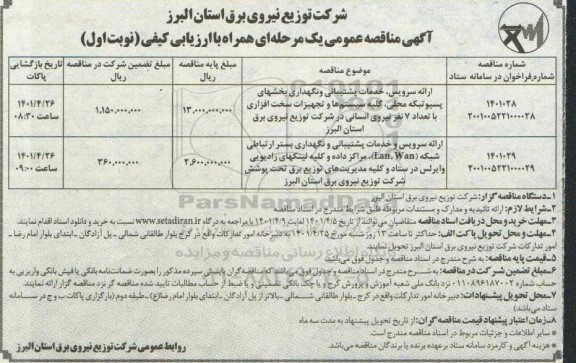 شرکت توزیع نیروی برق استان البرز
آگهی مناقصه عمومی یک مرحله‌ای همراه با ارزیابی کیفی (نوبت اول)
شماره مناقصه
شماره فراخوان در سامانه ستاد
موضوع مناقصه
مبلغ پایه مناقصه
ریال
مبلغ تضمین شرکت در مناقصه
ریال
تاریخ بازگشایی
پاکات
۱۴۰۱۰۲۸
۲۰۰۱۰۰۵۲۲۱۰۰۰۰۲۸
ارائه سرویس، خدمات پشتیبانی و نگهداری بخشهای
پسیو شبکه محلی، کلیه سیستم‌ها و تجهیزات سخت افزاری
با تعداد ۷ نفر نیروی انسانی در شرکت توزیع نیروی برق
استان البرز
۱۳,۰۰۰,۰۰۰,۰۰۰
۱,۱۵۰,۰۰۰,۰۰۰
۱۴۰۱/۴/۲۶
ساعت ۰۸:۳۰
۱۴۰۱۰۲۹
۲۰۰۱۰۰۵۲۲۱۰۰۰۰۲۹
ارائه سرویس و خدمات پشتیبانی و نگهداری بستر ارتباطی
شبکه (Lan, Wan)، مراکز داده و کلیه لینکهای رادیویی
وایرلس در ستاد و کلیه مدیریت‌های توزیع برق تحت پوشش
شرکت توزیع نیروی برق استان البرز
۲,۶۰۰,۰۰۰,۰۰۰
۳۶۰,۰۰۰,۰۰۰
۱۴۰۱/۴/۲۶
ساعت ۰۹:۰۰
۱- دستگاه مناقصه گزار: شرکت توزیع نیروی برق استان البرز
۲- شرایط لازم: ارائه تائیدیه و مدارک و مستندات مربوطه طبق شرایط مندرج در اسناد مناقصه
۳- مهلت خرید و محل دریافت اسناد مناقصه: متقاضیان می‌توانند از تاریخ ۱۴۰۱/۴/۵ لغایت ۱۴۰۱/۴/۹ با مراجعه به درگاه www.setadiran.ir نسبت به خرید و دانلود اسناد اقدام نمایند.
۴- مهلت و محل تحویل پاکت الف: حداکثر تا ساعت ۱۳ روز شنبه مورخ ۱۴۰۱/۴/۲۵ به دبیرخانه امور تدارکات واقع در کرج بلوار طالقانی شمالی - پل آزادگان - ابتدای بلوار امام رضا -
امور تدارکات شرکت توزیع نیروی برق استان البرز تحویل نمایند.
۵- قیمت پایه مناقصه: به شرح مندرج در اسناد مناقصه و جدول فوق می‌باشد.
۶- مبلغ تضمین شرکت در مناقصه: به شرح مندرج در اسناد مناقصه و جدول فوق می‌باشد که مناقصه گران بایستی سپرده مذکور را بصورت ضمانت‌نامه بانکی یا فیش بانکی واریزی به
حساب شماره ۰۱۱۰۸۹۶۱۸۷۰۰۲ نزد بانک ملی شعبه آموزش و پرورش کرج و یا چک بانکی تضمینی و یا ضبط از حساب مطالبات تایید شده مناقصه گر نزد مناقصه گزار ارائه نمایند.
۷- محل تحویل پیشنهادات: دبیرخانه امور تدارکات واقع در کرج - بلوار طالقانی شمالی - بالاتر از پل آزادگان - ابتدای بلوار امام رضا - طبقه دوم (بارگزاری پاکات ب و ج در سامانه
ستاد می‌باشد)
۸- زمان اعتبار پیشنهاد قیمت مناقصه گران: از تاریخ تحویل پیشنهاد به مدت سه ماه
* سایر اطلاعات و جزئیات مربوط در اسناد مناقصه مندرج است.
* هزینه آگهی و کارمزد سامانه ستاد برعهده برنده یا برندگان مناقصه می‌باشد.
روابط عمومی شرکت توزیع نیروی برق استان البرز